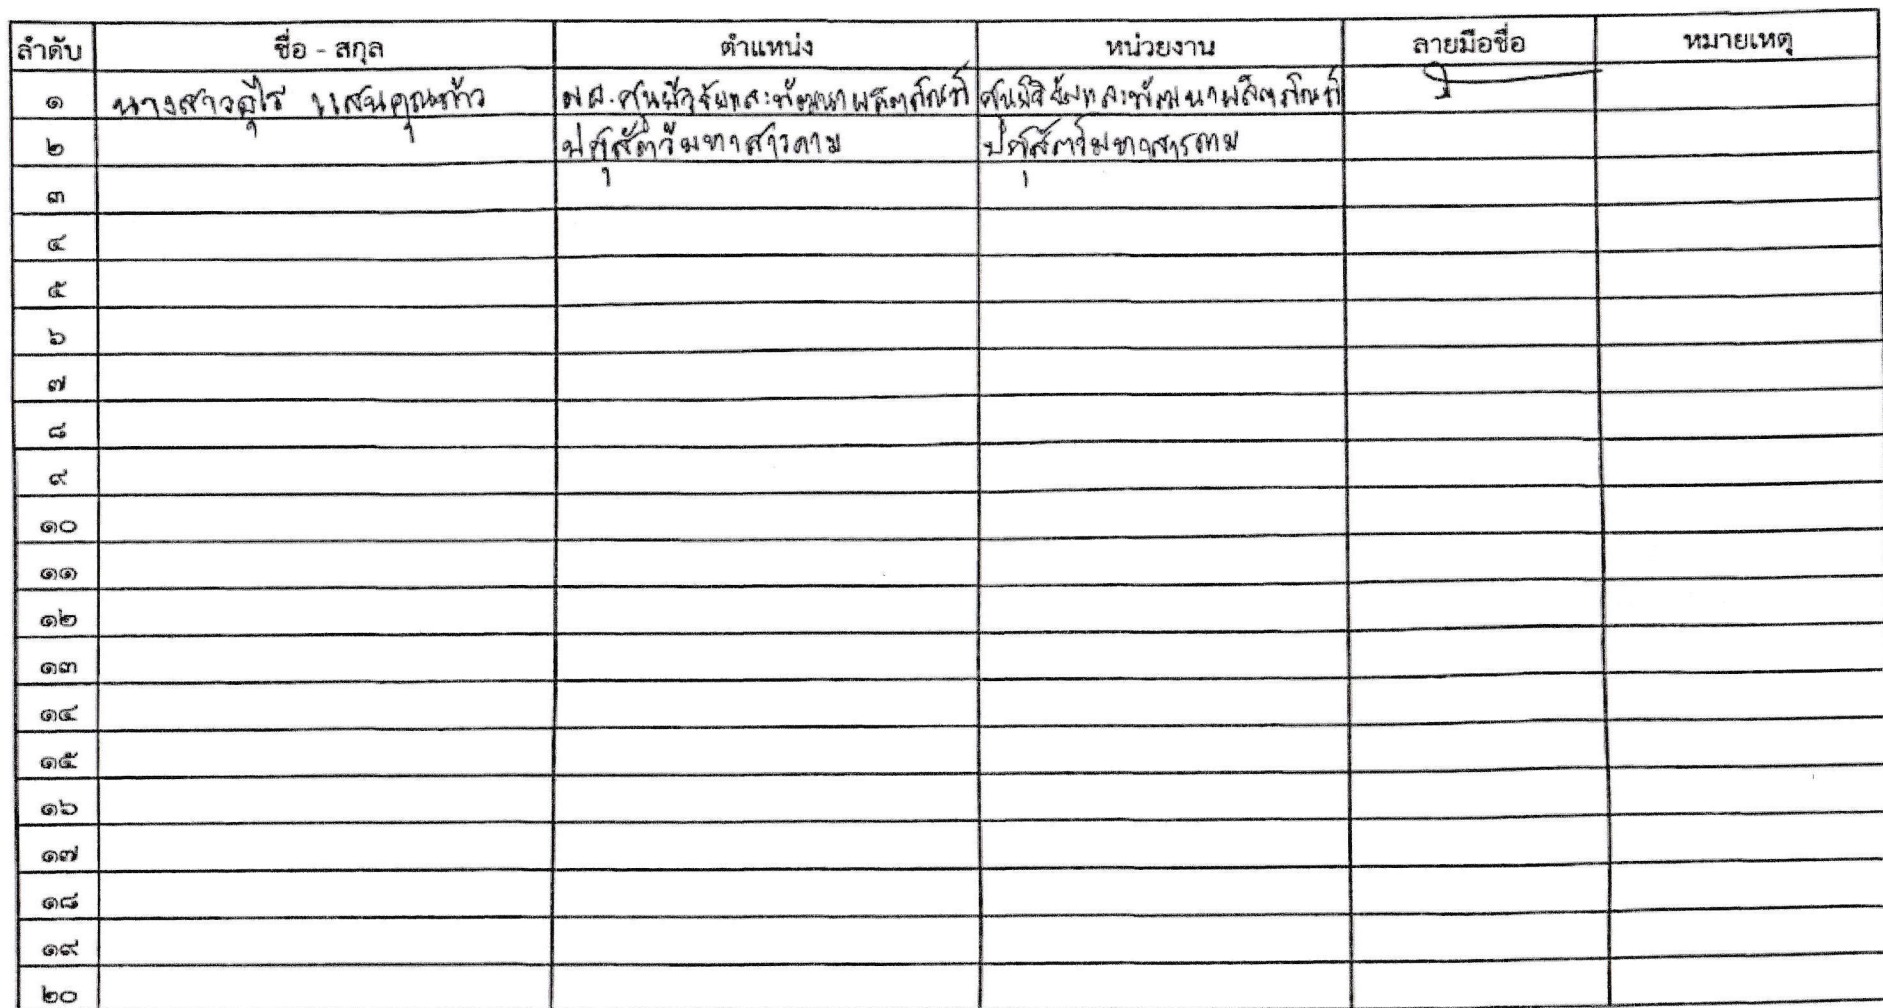 ลำดับ ชื่อ - สกุล ตำแหน่ง หน่วยงาน ลายมือชื่อ หมายเหตุ
๑ นางสาวอุไร แสนคุณท้าว ผอ.ศูนย์วิจัยและพัฒนาผลิตภัณฑ์ ศูนย์วิจัยและพัฒนาผลิตภัณฑ์
๒ ปศุสัตว์มหาสารคาม ปศุสัตว์มหาสารคาม
๓
๔
๕
๖
๗
๘
๙
๑๐
๑๑
๑๒
๑๓
๑๔
๑๕
๑๖
๑๗
๑๘
๑๙
๒๐